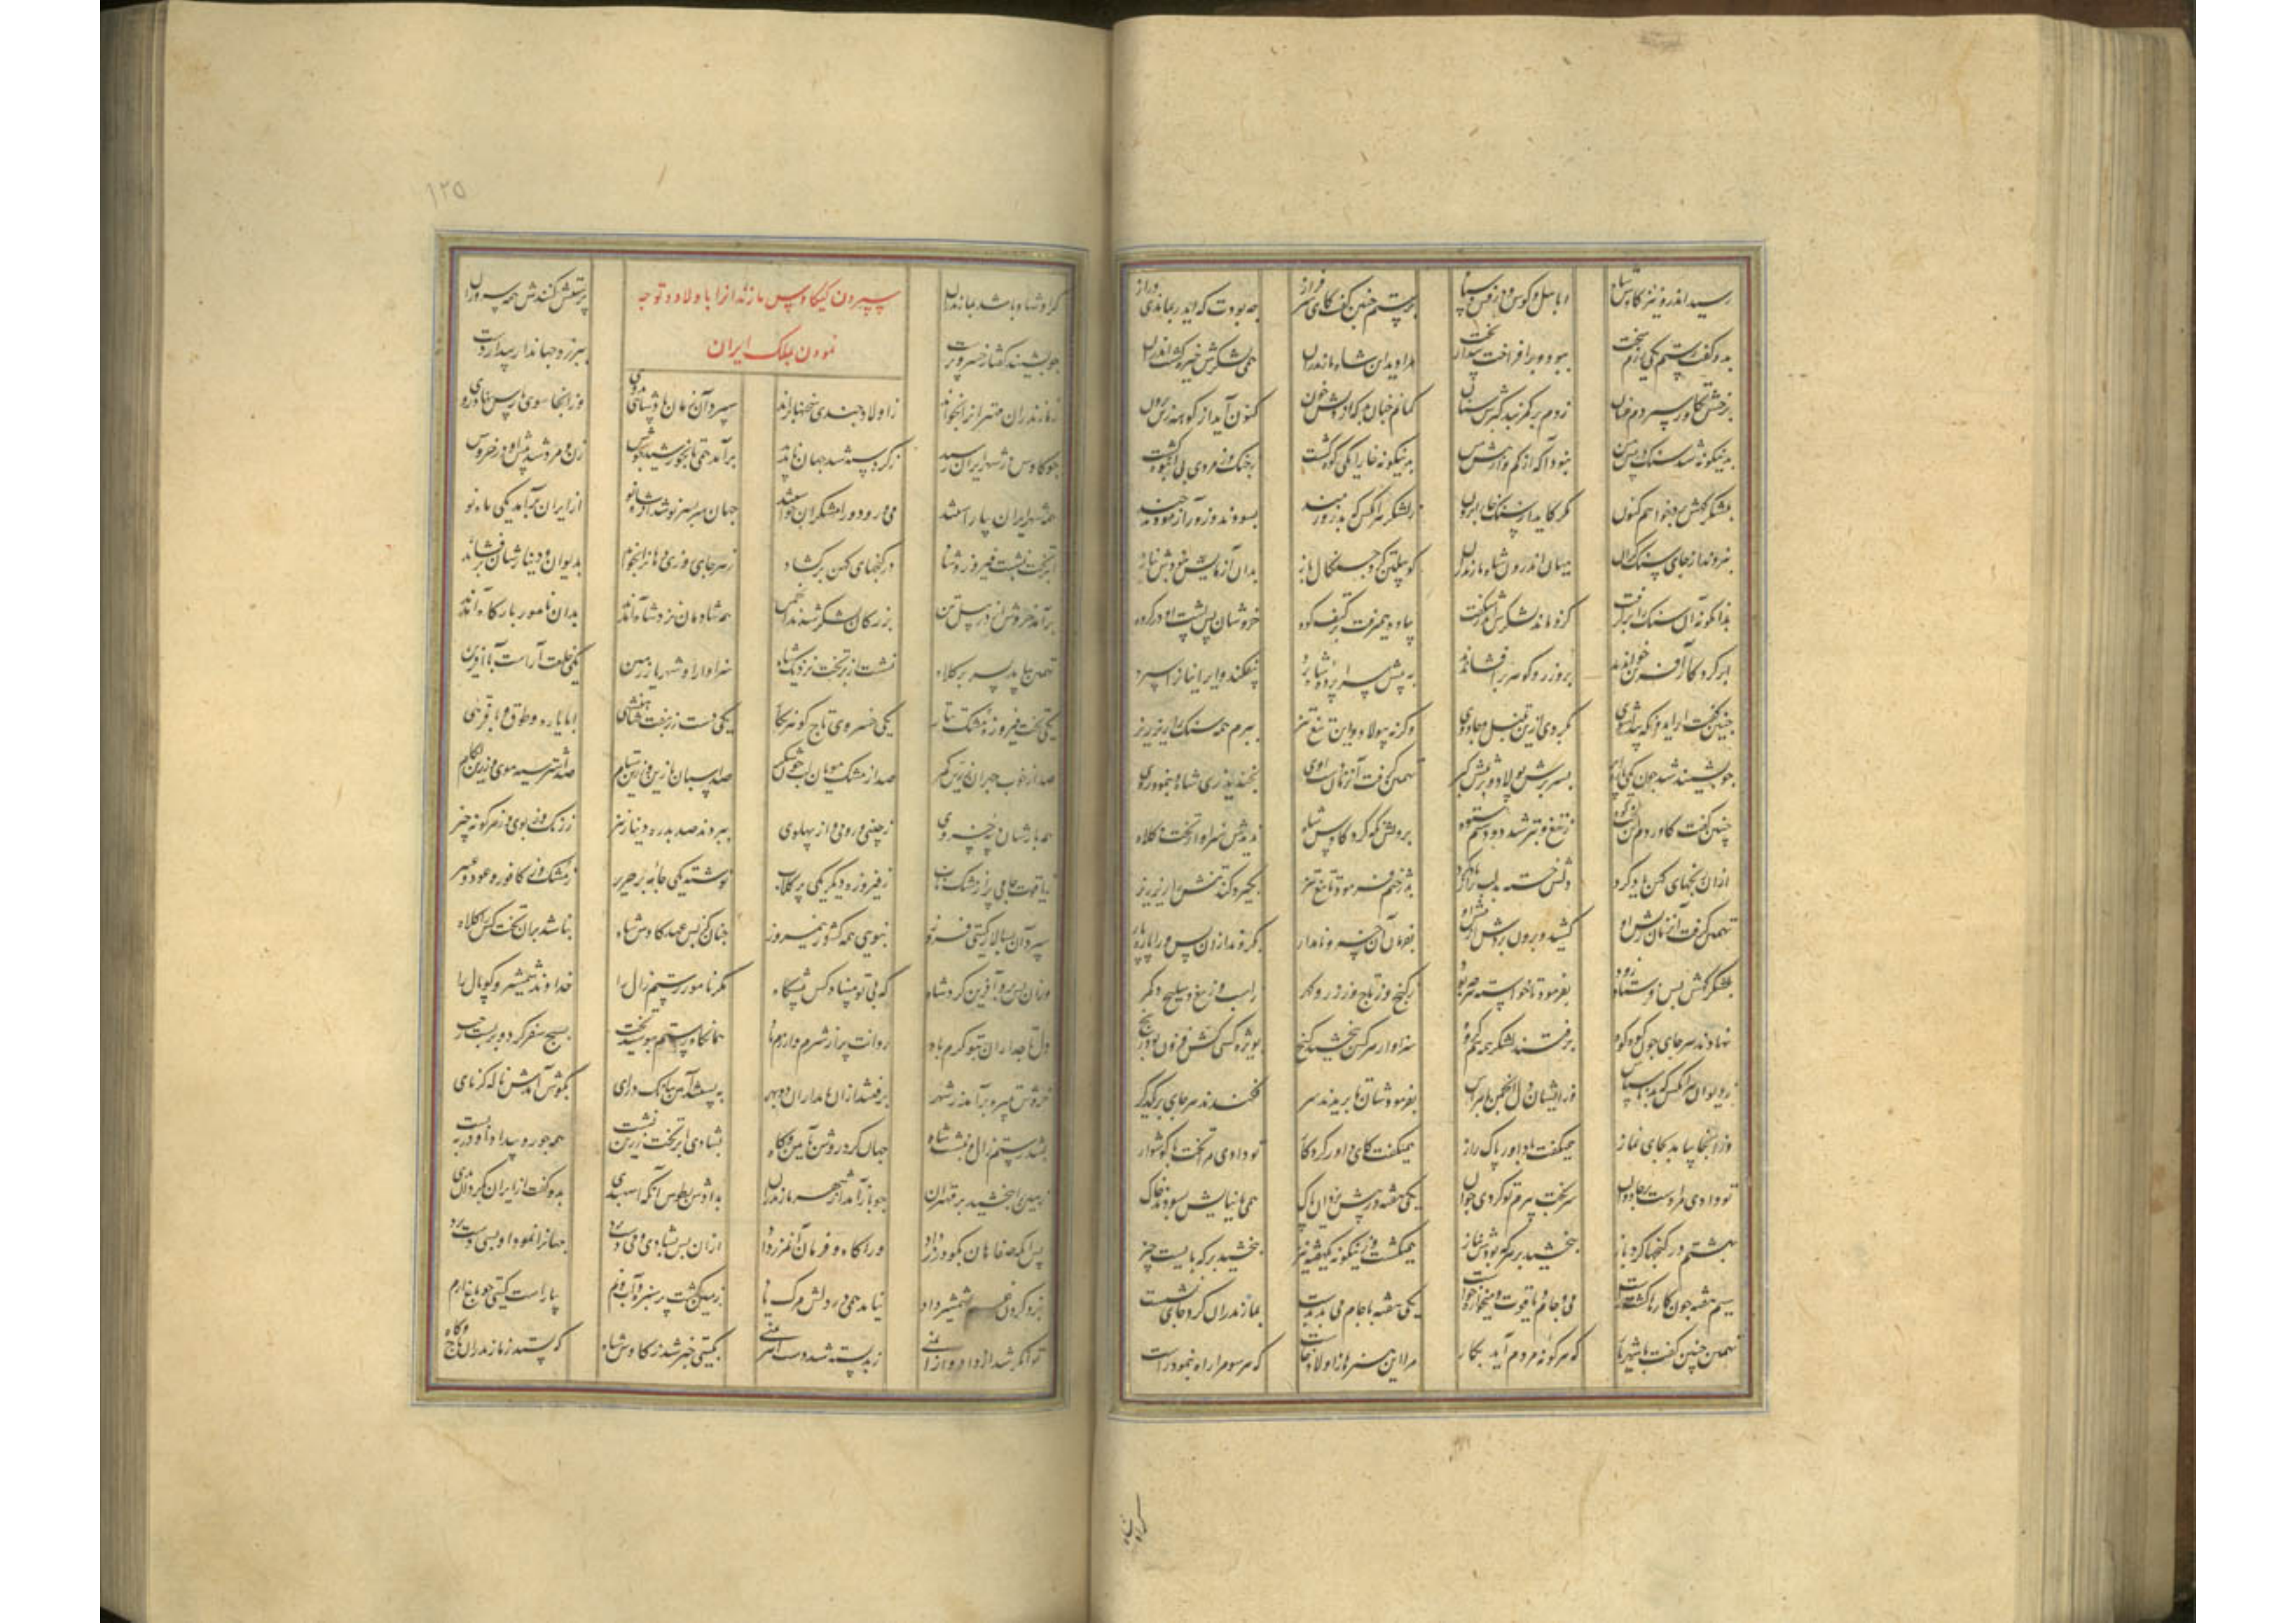 رسید اندرو نیز کاوس شاه ابا پیل و کوس و درفش و سپاه برستم چنین گفت کای سرفراز چه بودت که ایدر بماندی دراز
بدو گفت رستم یکی رزم سخت ببود و برافراخت بیدار بخت مرا دید این شاه مازندران همی لشکرش خیره گشت اندران
برخش تکاور سپردم عنان زدم بر کمربند گبرش سنان گمانم چنان بد که از درش خون کنون آید از کوهه زین برون
بدینگونه شد سنگ در پیش من نبود آگه از کم و از بیش من بدینگونه خارا یکی کوه گشت ز جنگ و ز مردی بی اندوه گشت
بلشکر گهش برد خواهم کنون مگر کاید از سنگ خارا برون ز لشکر هر آنکس که بد زورمند بسودند و زور آزمودند چند
نبرخاست از جای سنگ گران میان اندرون شاه مازندران گو پیلتن کرد چنگال باز بدان آزمایش نبودش نیاز
بدانگونه آن سنگ را برگرفت کزو ماند لشکرش اندر شگفت پیاده همیرفت بر کتف کوه خروشان پس پشت او در گروه
ابر کردگار آفرین خواندند برو زر و گوهر برافشاندند به پیش سراپرده شاه برد بیفکند و ایرانیانرا سپرد
چنین گفت ار ایدونکه پیدا شوی بگردی ازین تنبل و جادوی وگرنه بپولاد و این تیغ تیز ببرم همه سنگ را ریز ریز
چو بشنید شد چون یکی پاره ابر بسر برش پولاد و بر تنش گبر تهمتن گرفت آنزمان دست اوی بخندید و زی شاه بنمود روی
چنین گفت کاوردم آن لخت کوه ز تیغ و تبر شد ز دستم ستوه برویش نگه کرد کاوس شاه ندیدش سزاوار تخت و کلاه
ازان رنجهای کهن یاد کرد دلش خسته شد لب پر از باد کرد بدژخیم فرمود تا تیغ تیز بگیرد کند تنش را ریز ریز
تهمتن گرفت آنزمان ریش او کشید و برون بردش از پیش او بفرمان آن خسرو نامدار بکردند ازان پس ورا پاره پار
بلشکر گهش کس فرستاد زود بفرمود تا خواسته هر چه بود ز گنج و ز تاج و ز زر و گهر ز اسب و ز تیغ و سلیح و دگر
نهادند هر جای چون کوه کوه برفتند لشکر همه همگروه سزاوار هر کس ببخشید گنج بویژه کسی کش فزون بود رنج
ز دیوان هر آنکس که بد ناسپاس وز ایشان دل انجمن با هراس بفرمودشان تا بریدند سر فکندند هر جای بر رهگذر
وز آنجا بیامد بجای نماز همیگفت با داور پاک راز همیگفت کای داور کردگار تو دادی مرا تخت با گوشوار
تو دادی مرا دست بر جادوان سر بخت پیرم تو کردی جوان یکی هفته در پیش یزدان پاک همی با نیایش بسودند خاک
بهشتم در گنجها کرد باز ببخشید بر هر که بودش نیاز همیگشت زینگونه یکهفته نیز ببخشید بر که بایست چیز
سیم هفته چون کارها گشت راست می و جام یاقوت و میخواره خواست یکی هفته با جام می بدست بمازندران کرد جای نشست
تهمتن چنین گفت با شهریار که هر گونه مردم آید بکار مرا این هنرها ز اولاد خاست که هر سو مرا راه بنمود راست
۱۲۵
که او شاه باشد بمازندران پرستش کنندش همه سروران
سپردن کیکاوس مازندرانرا باولاد و توجه
نمودن بملک ایران
چو بشنید گفتار خسرو پرست ببر زد جهاندار بیدار دست
ز مازندران مهترانرا بخواند ز اولاد چندی سخنها براند سپرد آن زمان تاج شاهی بدوی وز آنجا سوی پارس بنهاد روی
چو کاوس در شهر ایران رسید ز گرد سپه شد جهان ناپدید برآمد همی تا بخورشید جوش زن و مرد شد پیش او در خروش
همه شهر ایران بیاراستند می و رود و رامشگران خواستند جهان سربسر نو شد از شاه نو از ایران برآمد یکی ماه نو
بر تخت بنشست فیروز و شاد در گنجهای کهن برگشاد ز هر جای روزی دهانرا بخواند بدیوان و دینارشان برفشاند
برآمد خروش از در پیلتن بزرگان لشکر شدند انجمن همه شادمان نزد شاه آمدند بدان نامور بارگاه آمدند
تهمتن بیامد بسر بر کلاه نشست از بر تخت نزدیک شاه سزاوار او شهریار زمین یکی خلعت آراست با آفرین
یکی تخت فیروزه و مشک یکی خسروی تاج گوهر نگار یکی دست زربفت شاهنشهی ابا یاره و طوق و با فرهی
صد از خوب چهران زرین کمر صد از مشک مویان صد اسبان با زین و زرین ستام صد استر سیه موی و زرین لگام
همه بارشان دیبه خسروی ز چینی و رومی و از پهلوی ببردند صد بدره دینار نیز ز رنگ و ز بوی و ز هر گونه چیز
ز یاقوت جامی پر از مشک ناب ز فیروزه دیگر یکی پر گلاب نوشته یکی بر حریر ز مشک و ز کافور و عود و عبیر
سپرد آن بسالار گیتی فروز بنوی همه کشور نیمروز چنان کز پس عهد کاوس شاه نباشد بران تخت کس را کلاه
وزان پس برو آفرین کرد شاه که بی تو مبیناد کس پیشگاه مگر نامور رستم زال را خداوند شمشیر و کوپال را
دل تاجداران بتو گرم باد روانت پر از شرم و آزرم باد همانگاه رستم ببوسید تخت بسیج سفر کرد و بربست رخت
خروش تبیره برآمد ز شهر برفتند ازان نامداران دو بهر بانگ درای بگوش آمدش ناله کرنای
بشد رستم زال و بنشست شاه جهان کرد روشن بآیین و گاه بشادی بر تخت زرین نشست همه جور و بیداد را در ببست
زمین را ببخشید بر مهتران چو باز آمد از شهر مازندران بطوس آنگه اسپهبدی بدو گفت از ایران بگردان بدی
پس آنگه صفاهان بگودرز داد ورا گاه و فرمان آنمرز داد ازان پس بشادی و می دست برد جهانرا نمود او بسی دستبرد
بزد گردن غم بشمشیر داد نیامد همی بر دلش مرگ یاد زمین گشت پر سبزه و آب و نم بیاراست گیتی چو باغ ارم
توانگر شد از داد و از ایمنی ز بد بسته شد دست اهرمنی بگیتی خبر شد ز کاوس شاه که بستد ز مازندران تاج و گاه